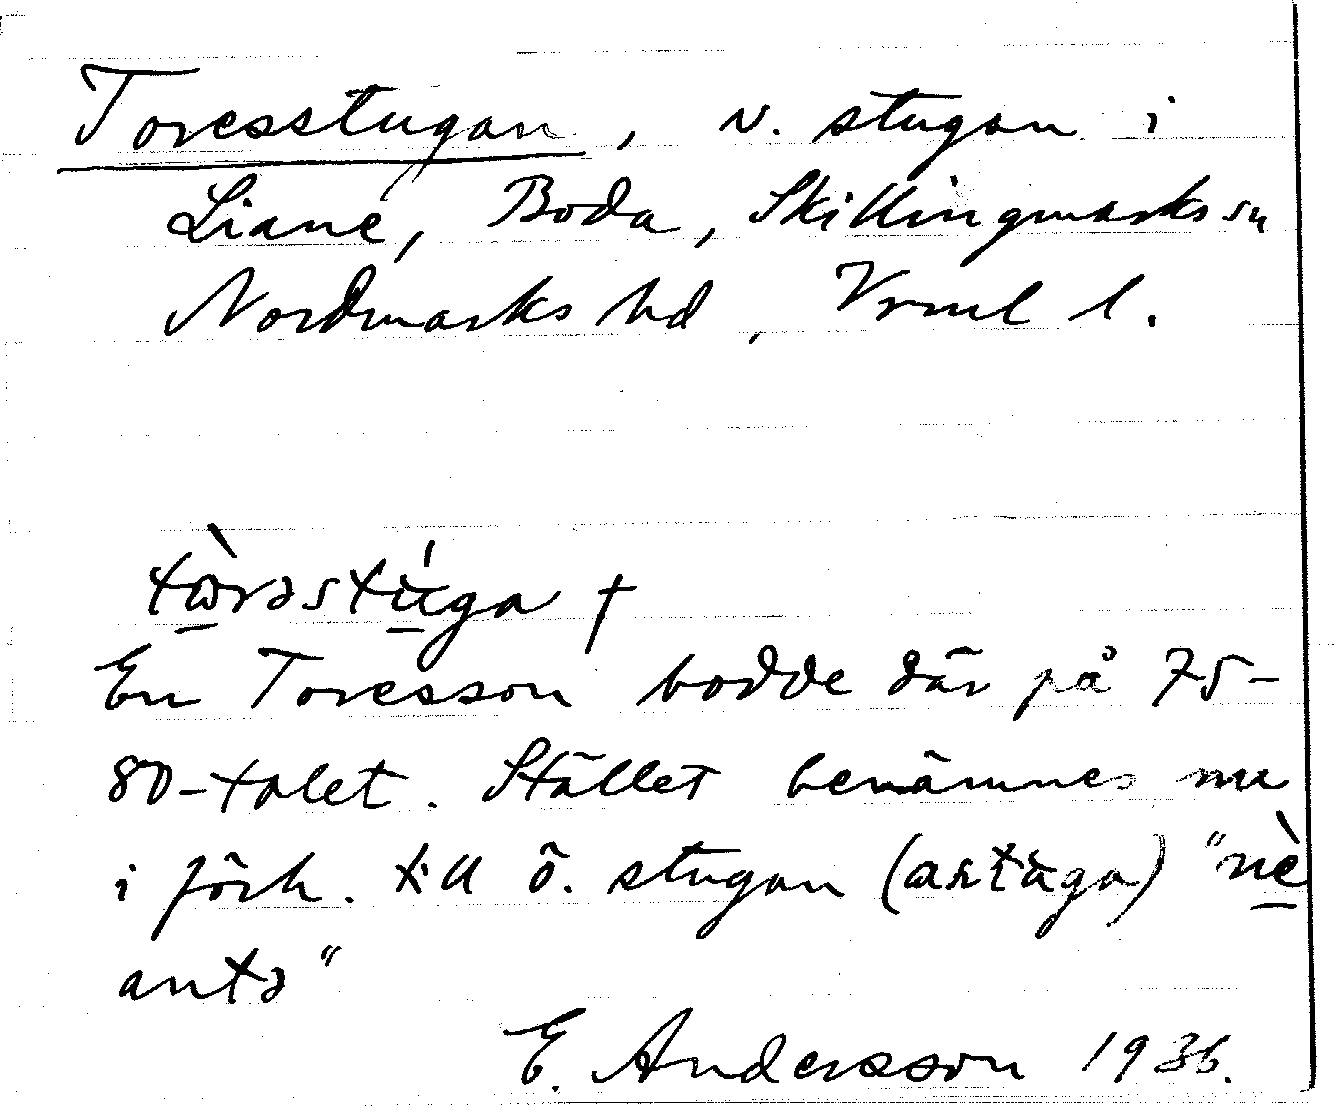 Toresstugan, v. stugan i
Liane, Boda, Skillingmarks sn
Nordmarks hd, Vrml l.
tὼrəstúga †
En Toresson bodde där på 75-
80-talet. Stället benämnes nu
i förh. till ö. stugan "nè
antə"
E. Andersson 1936.